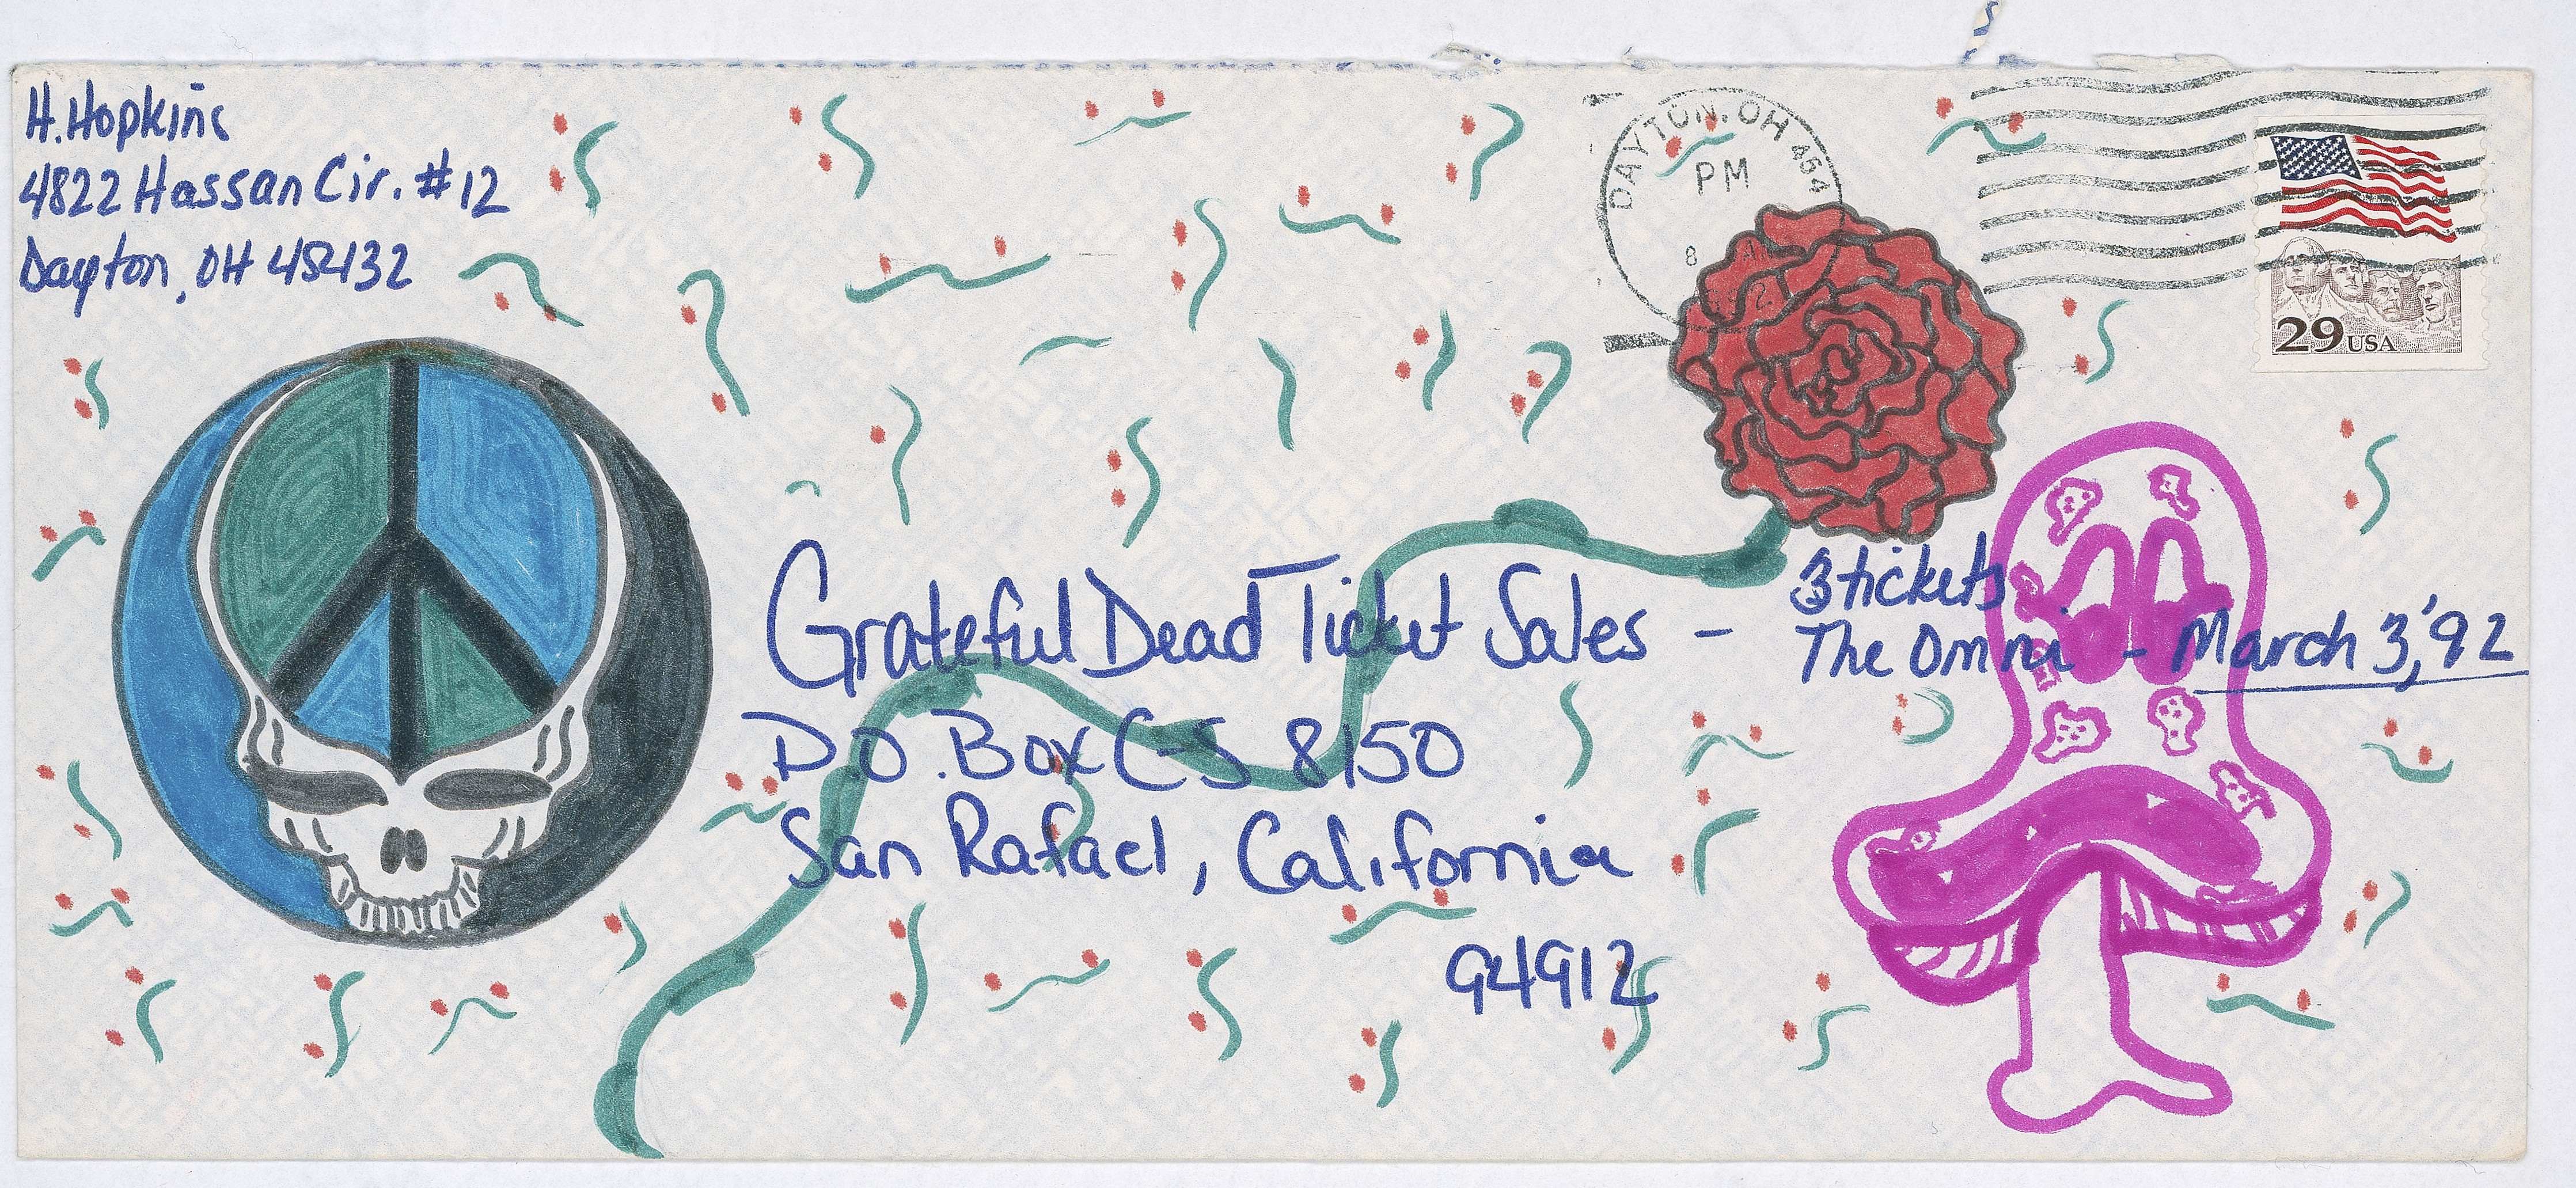 H. Hopkins
4822 Hassan Cir. #12
Dayton, OH 45432
DAYTON, OH 454
PM
8
29 USA
3 tickets
Grateful Dead Ticket Sales - The Omni - March 3, '92
P.O. Box CS 8150
San Rafael, California
94912